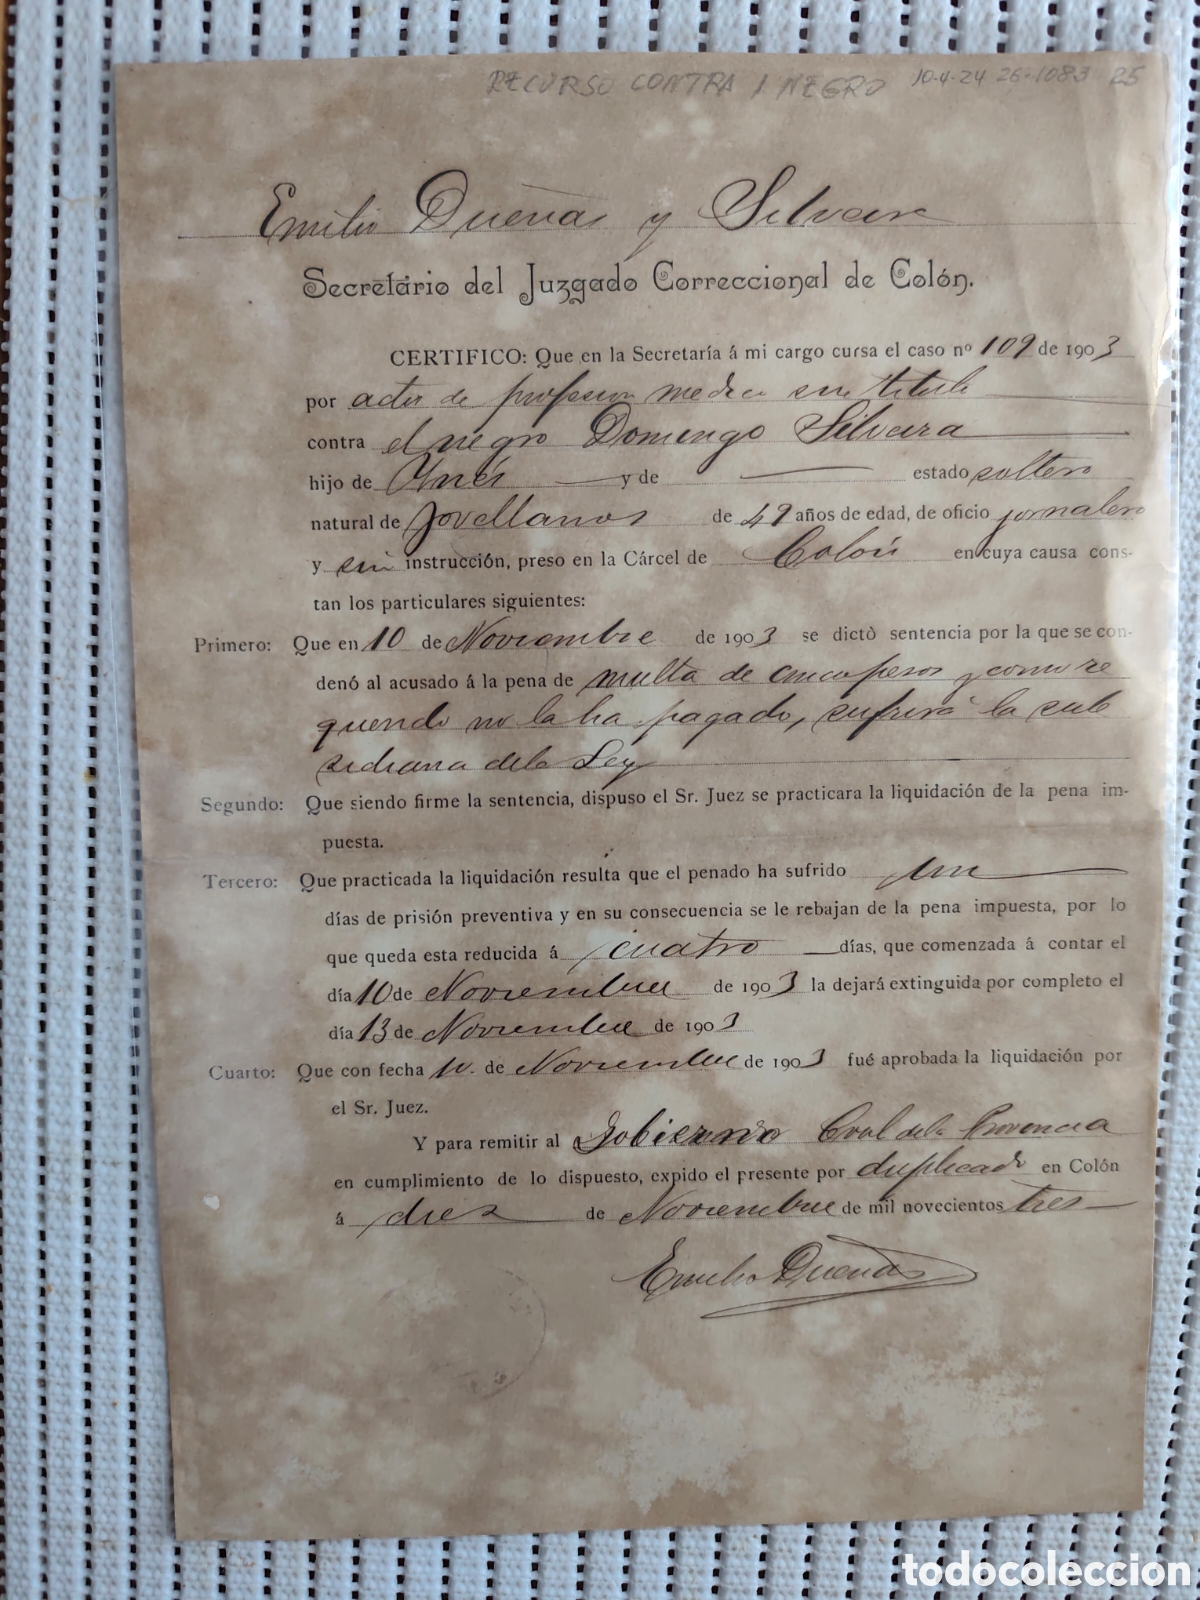 RECURSO CONTRA 1 NEGRO 10-4-24 26-1083 25
Emilio Dueñas y Silveira
Secretario del Juzgado Correccional de Colón.
CERTIFICO: Que en la Secretaría á mi cargo cursa el caso nº 109 de 1903
por actos de profesion medica sin titulo
contra el negro Domingo Silveira
hijo de Ynés y de — estado soltero
natural de Jovellanos de 49 años de edad, de oficio jornalero
y sin instrucción, preso en la Cárcel de Colón en cuya causa cons-
tan los particulares siguientes:
Primero: Que en 10 de Noviembre de 1903 se dictò sentencia por la que se con-
denó al acusado á la pena de multa de cinco pesos y como re
querido no la ha pagado, sufrirá la sub
sidiaria de la Ley
Segundo: Que siendo firme la sentencia, dispuso el Sr. Juez se practicara la liquidación de la pena im-
puesta.
Tercero: Que practicada la liquidación resulta que el penado ha sufrido un
días de prisión preventiva y en su consecuencia se le rebajan de la pena impuesta, por lo
que queda esta reducida á cuatro días, que comenzada á contar el
día 10 de Noviembre de 1903 la dejará extinguida por completo el
día 13 de Noviembre de 1903
Cuarto: Que con fecha 10. de Noviembre de 1903 fué aprobada la liquidación por
el Sr. Juez.
Y para remitir al Gobierno Cvol de la Provincia
en cumplimiento de lo dispuesto, expido el presente por duplicado en Colón
á diez de Noviembre de mil novecientos tres
Emilio Dueñas
todocoleccion